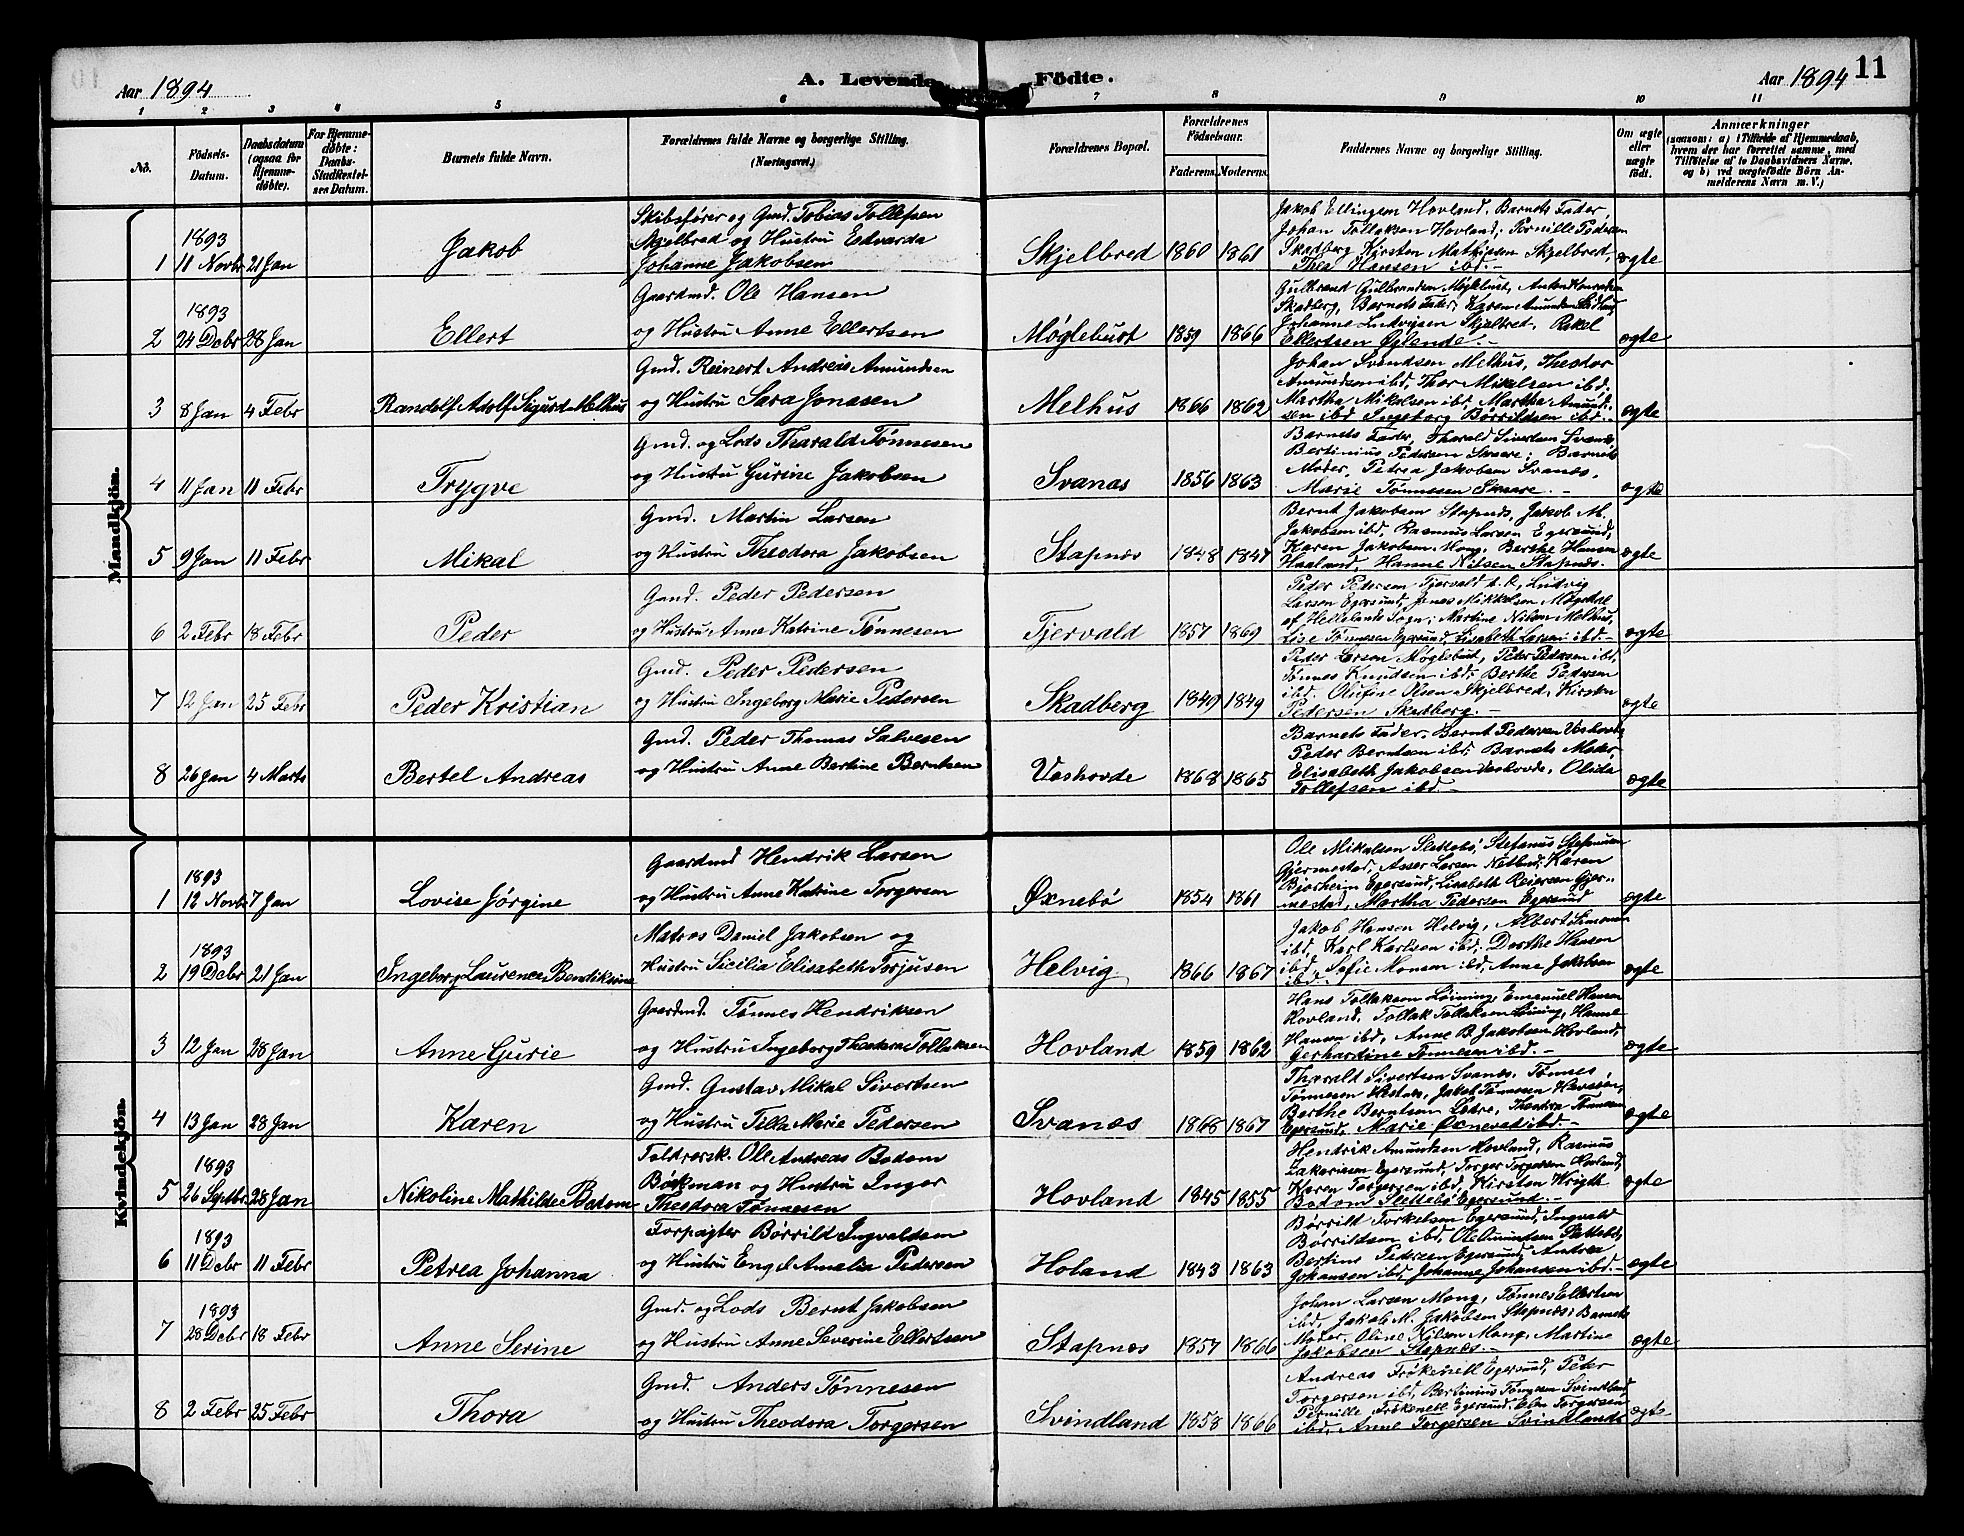 Aar 1894
A. Levende Födte.
Aar 1894 11
1 2 3 4 5 6 7 8 9 10 11
No.
Födsels-Datum.
Daabsdatum (ogsaa for Hjemmedöbte).
For Hjemmedöbte: Daabs-Stadfæstelses Datum.
Barnets fulde Navn.
Forældrenes fulde Navne og borgerlige Stilling.
(Næringsvei.)
Forældrenes Bopæl.
Forældrenes Födselsaar.
Faderens. Moderens.
Faddernes Navne og borgerlige Stilling.
Om ægte eller uægte födt.
Anmærkninger
(saasom: a) i Tilfælde af Hjemmedaab, hvem der har forrettet samme, med Tilföielse af to Daabsvidners Navne, og b) ved uægtefödte Börn Anmelderens Navn m. V.)
Mandkjön.
1 1893 11 Novbr 21 Jan Jakob
Skibsfører og Gmd. Tobias Tollefsen
Skjelbred og Hustru Edvarda
Johanne Jakobsen
Skjelbred 1860 1861
Jakob Ellingsen Hovland, Barnets Fader,
Johan Tollaksen Hovland; Pernille Pedersen
Skadberg, Kirsten Mathisen Skjelbred,
Thea Hansen ibd.-
ægte
2 1893 24 Debr 28 Jan Ellert
Gaardmd. Ole Hansen
og Hustru Anne Ellertsen
Møglebust 1859 1866
Skadberg, Barnets Fader; Karen Amundsen
Johanne Ludvigsen Skjelbred, Rakel
Ellertsen Øglende.-
ægte
3 8 Jan 4 Febr Randolf Adolf Sigurd Melhus
Gmd. Reinert Andreas Amundsen
og Hustru Sara Jonasen
Melhus 1866 1862
Johan Svendsen Melhus, Theodor
Amundsen ibd, Thor Mikelsen ibd.
Martha Mikalsen ibd, Martha Amund-
sen ibd Ingeborg Børrildsen ibd.-
ægte
4 11 Jan 11 Febr Trygve
Gmd. og Lods Tharald Tønnesen
og Hustru Gurine Jakobsen
Svanæs 1856 1863
Barnets Fader, Tharald Sivertsen Svanæs,
Bertinius Pedersen Skaare; Barnets
Moder, Petrea Jakobsen Svanæs,
Marie Tønnesen Skaare.-
ægte
5 9 Jan 11 Febr Mikal
Gmd. Martin Larsen
og Hustru Theodora Jakobsen
Stapnæs 1848 1847
Bernt Jakobsen Stapnæs, Jakob M.
Jakobsen ibd, Rasmus Larsen Egersund,
Karen Jakobsen Mong, Berthe Hansen
Haaland, Hanne Nilsen Stapnæs.
ægte
6 2 Febr 18 Febr Peder
Gmd. Peder Pedersen
og Hustru Anne Katrine Tønnesen
Tjervald 1857 1869
Peder Pedersen Tjervald, Ludvig
Larsen Egersund, Jonas Mikkelsen Møgedal
af Hellelands Sogn; Martine Nilsen Melhus,
Lise Tønnesen Egersund, Lisabeth Larsen ibd.-
ægte
7 12 Jan 25 Febr Peder Kristian
Gmd. Peder Pedersen
og Hustru Ingeborg Marie Pedersen
Skadberg 1849 1849
Peder Larsen Møglebust, Peter Pedersen ibd,
Tønnes Knudsen ibd; Berthe Pedersen
ibd. Olufine Olsen Skjelbred, Kirsten
Pedersen Skadberg.-
ægte
8 26 Jan 4 Marts Bertel Andreas
Gmd. Peder Thomas Salvesen
og Hustru Anne Bertine Berntsen
Veshovde 1868 1865
Barnets Fader, Bernt Pedersen Veshovde
Peder Berntsen ibd; Barnets Moder,
Elisabeth Jakobsen Veshovde, Olida
Tollefsen ibd.-
ægte
Kvindekjön.
1 1893 12 Novbr 7 Jan Lovise Jørgine
Gaardmd Hendrik Larsen
og Hustru Anne Katrine Torgersen
Øxnebø 1854 1861
Ole Mikalsen Slettebø, Stefanus Stefansen
Gjermestad, Asser Larsen Netland; Karen
Bjorheim Egersund, Lisabeth Reiersen Gjer-
mestad, Martha Pedersen Egersund
ægte
2 1893 19 Debr 21 Jan Ingeborg Laurence Bendiksine
Matros Daniel Jakobsen og
Hustru Sicilia Elisabeth Torjusen
Helvig 1866 1867
Jakob Hansen Helvig, Albert Simonsen
ibd, Karl Karlsen ibd; Dorthe Hansen
ibd, Sofie Monsen ibd, Anne Jakobsen
ibd.-
ægte
3 12 Jan 28 Jan Anne Gurie
Gaardmd. Tønnes Hendriksen
og Hustru Ingeborg Theodora Tollaksen
Hovland 1859 1862
Hans Tollaksen Løining, Emanuel Hansen
Hovland, Tollak Tollaksen Løining, Hanne
Hansen ibd, Anne B. Jakobsen Hovland,
Gerhardine Tønnesen ibd.-
ægte
4 13 Jan 28 Jan Karen
Gmd. Gustav Mikal Sivertsen
og Hustru Tella Marie Pedersen
Svanæs 1868 1867
Tharald Sivertsen Svanæs, Tønnes
Tønnesen, Jakob Tønnesen
Berthe Berntsen, Theodora Tønnesen
Egersund, Marie Øxnevad ibd.-
ægte
5 1893 26 Septbr 28 Jan Nikoline Mathilde Bodom
Toldrorsk. Ole Andreas Bodom
Bøckman og Hustru Inger
Theodora Tønnesen
Hovland 1845 1855
Hendrik Amundsen Hovland, Rasmus
Zakariasen Egersund, Torger Torgersen Hovland,
Karen Torgersen ibd, Kirsten Wrigth
Bodom Slettebø Egersund.-
ægte
6 1893 11 Debr 11 Febr Petrea Johanna
Forpagter Børrild Ingvaldsen
og Hustru Engel Amalia Pedersen
Holand 1843 1863
Børrild Torkelsen Egersund, Ingvald
Børrildsen ibd, Ole Omundsen Slettebø,
Bertine Pedersen Egersund, Andrea
Johansen ibd, Johanne Johansen ibd.-
ægte
7 1893 28 Debr 18 Febr Anne Serine
Gmd. og Lods Bernt Jakobsen
og Hustru Anne Severine Ellertsen
Stapnæs 1857 1866
Johan Larsen Mong, Tønnes Ellertsen
ibd, Jakob M. Jakobsen Stapnæs; Barnets
Moder, Oline Nilsen Mong, Martine
Jakobsen Stapnæs.-
ægte
8 2 Febr 25 Febr Thora
Gmd. Anders Tønnesen
og Hustru Theodora Torgersen
Svindland 1858 1866
Andreas Frøkenell Egersund, Peder
Torgersen ibd, Bertinius Tønnesen Svindland
Pernille Frøkenell Egersund, Torgersen
ibd, Anne Torgersen Svindland
ægte